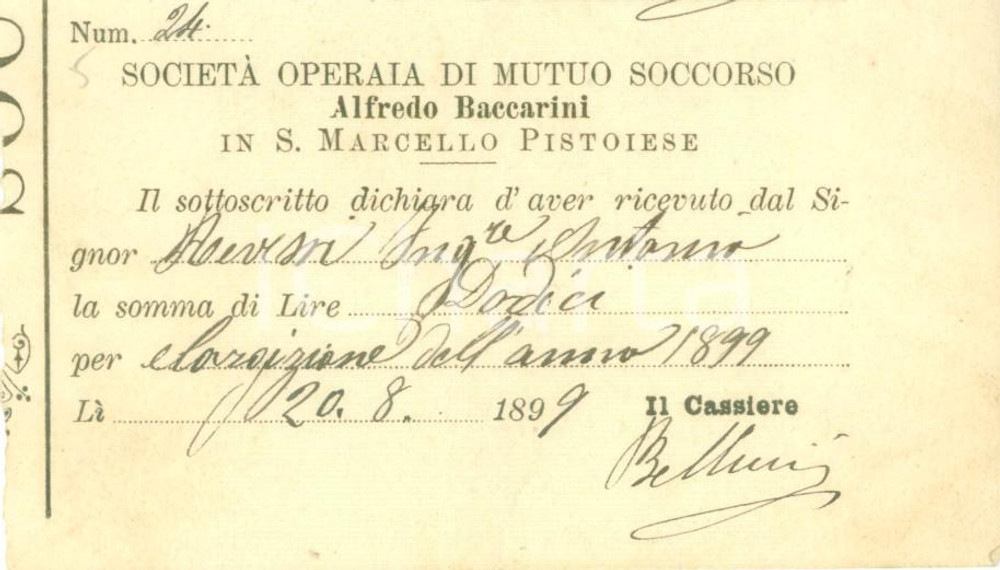 Num. 24.
SOCIETÀ OPERAIA DI MUTUO SOCCORSO
Alfredo Baccarini
IN S. MARCELLO PISTOIESE
Il sottoscritto dichiara d'aver ricevuto dal Si-
gnor Ingre Antonio
la somma di Lire Dodici
per elargizione dell'anno 1899
Lì 20. 8. 1899 Il Cassiere